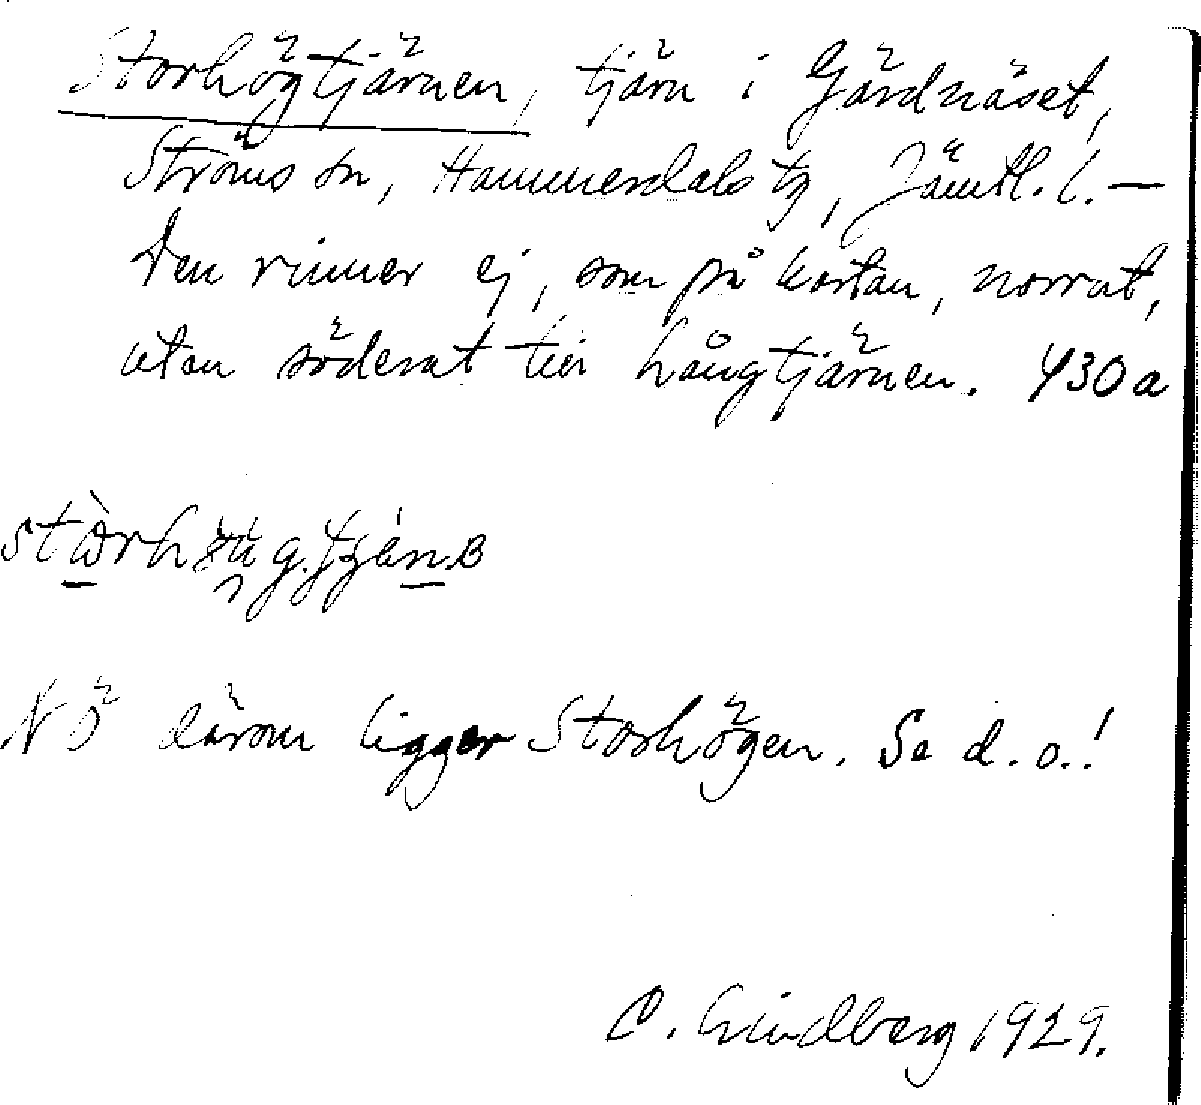 Storhögtjärnen, tjärn i Gärdnäset,
Ströms sn, Hammerdals tg, Jämtl. l. —
Den rinner ej, som på kartan, norrut,
utan söderut till Långtjärnen. 430a
NÖ därom ligger Storhögen. Se d. o.!
C. Lindberg 1929.